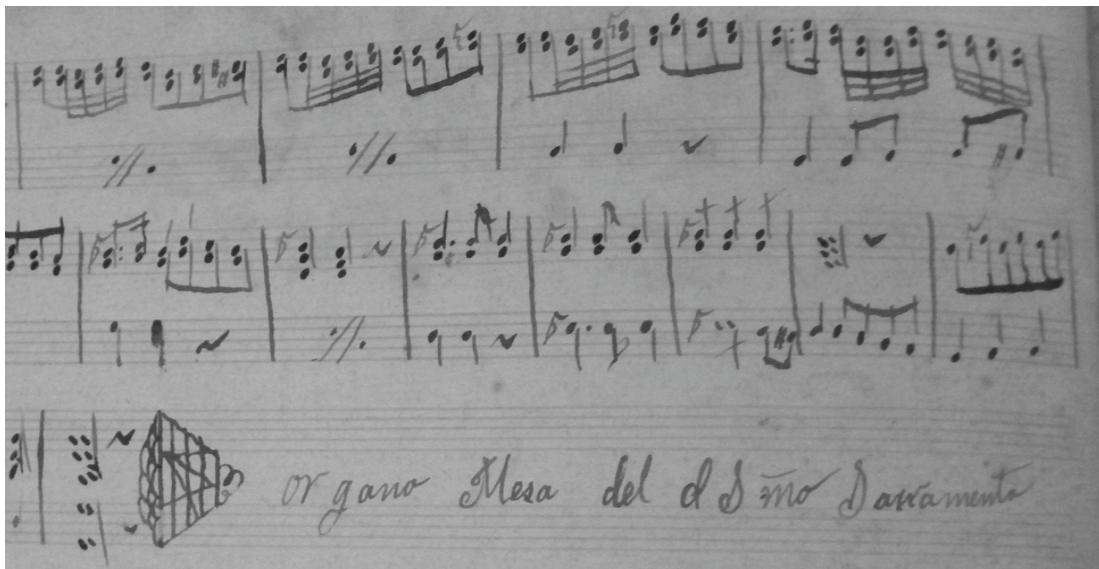 organo Mesa del d Smo Sacramento